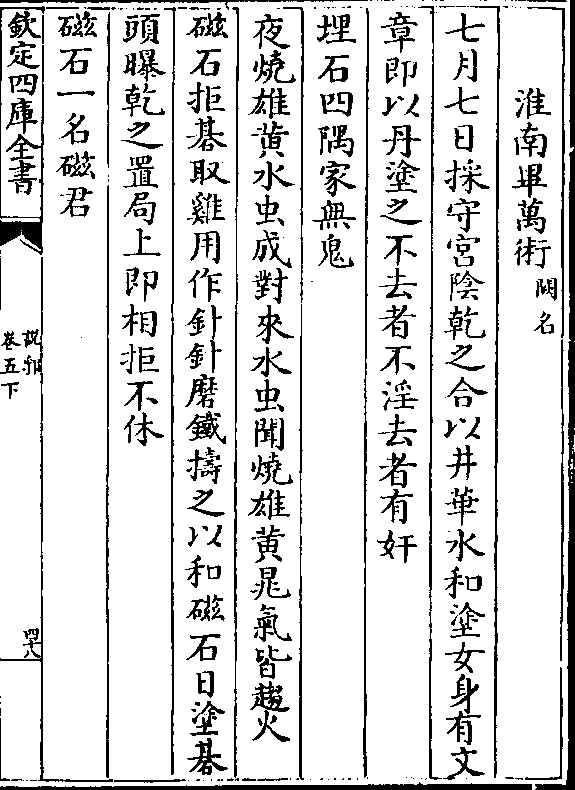 淮南畢萬術 闕名
七月七日採守宮陰乾之合以井華水和塗女身有文
章即以丹塗之不去者不淫去者有奸
埋石四隅家無鬼
夜燒雄黃水虫成對來水虫聞燒雄黃㫧氣皆趨火
磁石拒碁取雞用作針針磨鐵擣之以和磁石日塗碁
頭曝乾之置局上即相拒不休
磁石一名磁君
欽定四庫全書
說郛
卷五下
四八